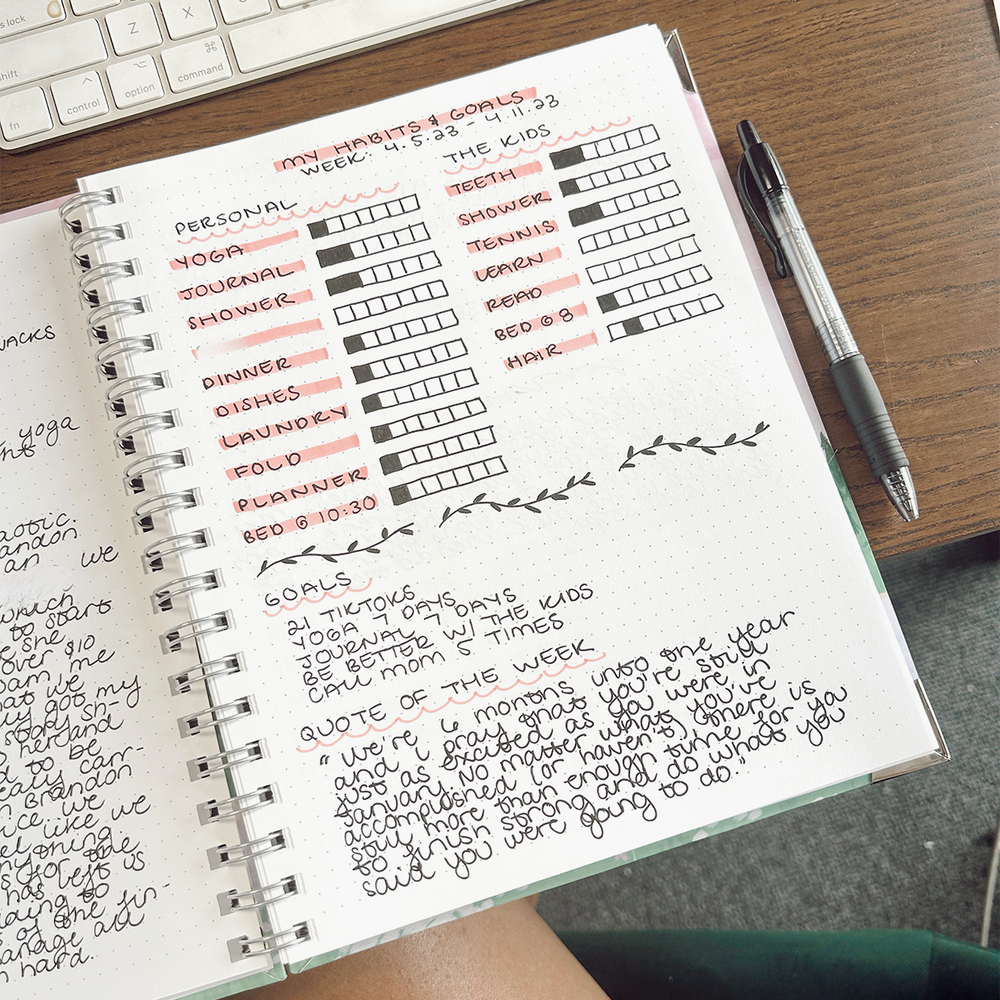 s lock
Z
X
shift
fn
^
control
⌥
option
⌘
command
MY HABITS & GOALS
WEEK: 4.5.23 - 4.11.23
PERSONAL
YOGA
JOURNAL
SHOWER
DINNER
DISHES
LAUNDRY
FOLD
PLANNER
BED @ 10:30
THE KIDS
TEETH
SHOWER
TENNIS
LEARN
READ
BED @ 8
HAIR
GOALS
21 TIKTOKS
YOGA 7 DAYS
JOURNAL 7 DAYS
BE BETTER W/ THE KIDS
CALL MOM 5 TIMES
QUOTE OF THE WEEK
"We're 6 months into the year
and i pray that you're still
just as excited as you were in
January. No matter what you've
accomplished (or haven't) there is
still more than enough time for you
to finish strong and do what you
said you were going to do."
yoga
we
which
to start
she
over $10
me
what we
got my
story sh-
her and
to be
car-
Brandon
we
like we
for the
has left is
going to
of the fir-
all
hard.